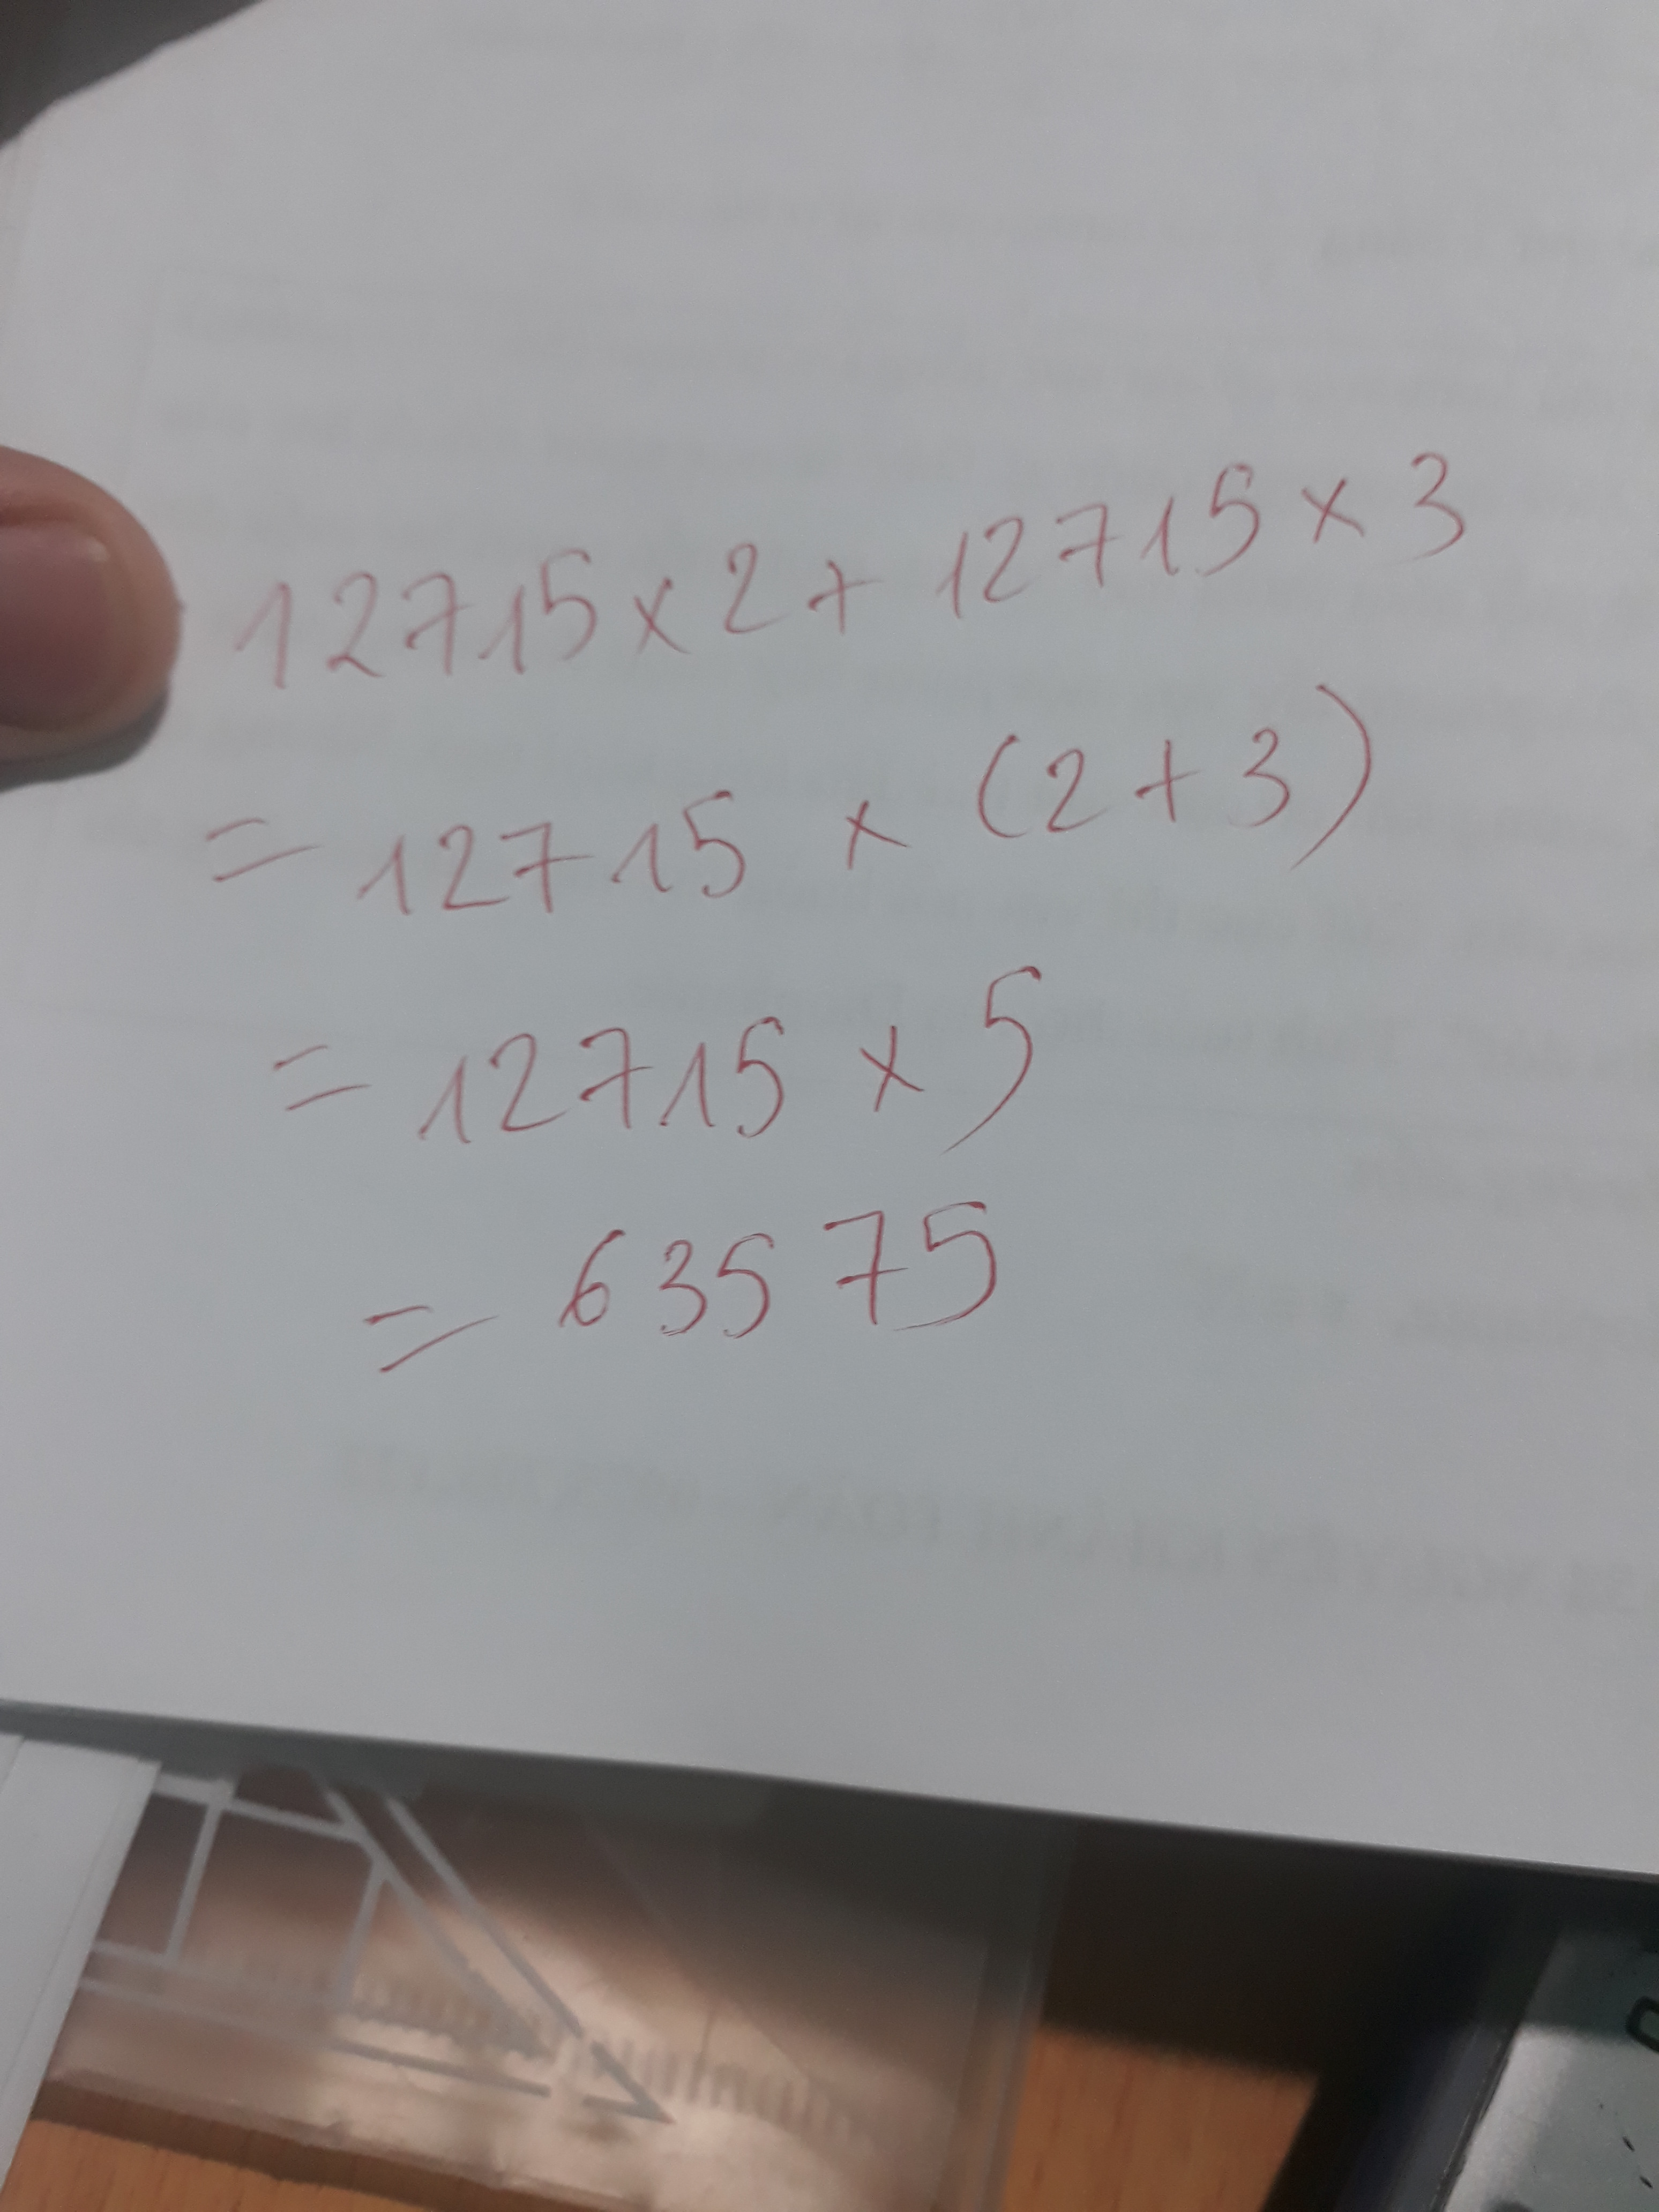 12715 x 2 + 12715 x 3
= 12715 x (2 + 3)
= 12715 x 5
= 63575